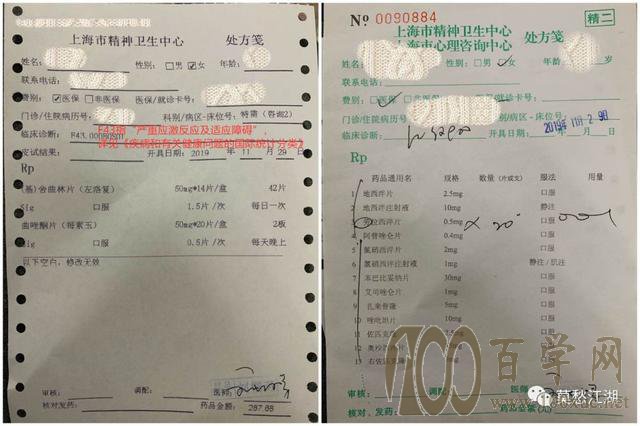 上海市精神卫生中心 处方笺
姓名: 性别: □男 ☑女 年龄:
联系电话:
费别: ☑医保 □非医保 医保/就诊卡号:
门诊/住院病历号: 科别/病区-床位号: 特需(咨询2)
临床诊断: F43.
F43指“严重应激反应及适应障碍”,
详见《疾病和有关健康问题的国际统计分类》
皮试结果: 开具日期: 2019 年 11 月 29 日
Rp
(基)舍曲林片(左洛复) 50mg*14片/盒 42片
Sig 口服 1.5片/次 每日一次
曲唑酮片(每素玉) 50mg*20片/盒 2板
Sig 口服 0.5片/次 每天晚上
以下空白,修改无效
审核: 调配: 医师:
核对发药: 药品金额: 287.88
№ 0090884 精二
上海市精神卫生中心 处方笺
上海市心理咨询中心
姓名: 性别: □男 女 年龄:
联系电话:
费别: 医保 □非医保 医保/就诊卡号:
门诊/住院病历号: 科别/病区-床位号:
临床诊断: 开具日期: 2019年 11月 29日
Rp
药品通用名 规格 数量(片或支) 服法 用量
1 地西泮片 2.5mg 口服
2 地西泮注射液 10mg 静注
3 劳拉西泮片 0.5mg × 20 口服
4 阿普唑仑片 0.4mg 口服
5 氯硝西泮片 2mg 口服
6 氯硝西泮注射液 1mg 静注/肌注
7 苯巴比妥钠片 30mg 口服
8 艾司唑仑片 1mg 口服
9 扎来普隆 5mg 口服
10 唑吡坦片 10mg 口服
11 佐匹克隆
12 奥沙西泮
13 右佐匹克隆
审核: 调配: 医师:
核对、发药: 药品金额:
100百学网
莫愁江湖